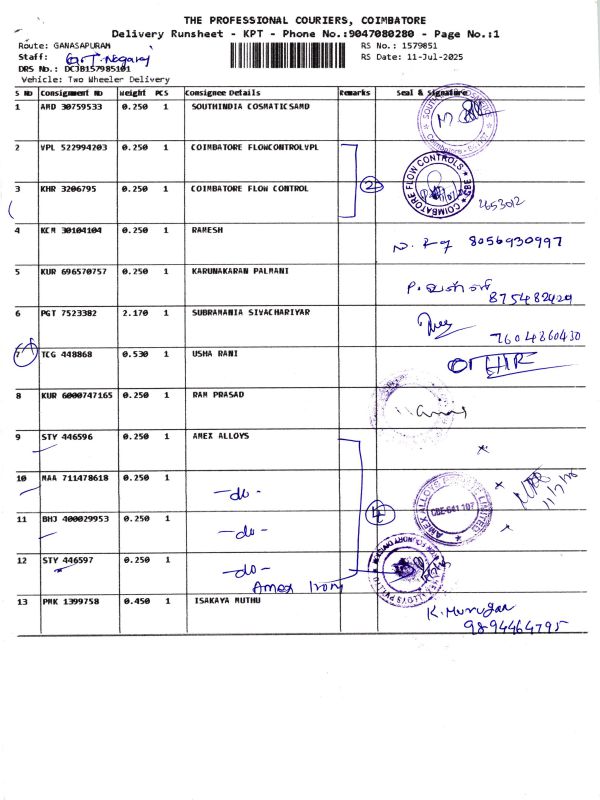 THE PROFESSIONAL COURIERS, COIMBATORE
Delivery Runsheet - KPT - Phone No.:9047080280 - Page No.:1
Route: GANASAPURAM RS No.: 1579851
Staff: RS Date: 11-Jul-2025
DRS No.: DCJB157985101
Vehicle: Two Wheeler Delivery
S NO Consignment NO Weight PCS Consignee Details Remarks Seal & Signature
1 AMD 30759533 0.250 1 SOUTHINDIA COSMATICSAMD
2 VPL 522994203 0.250 1 COIMBATORE FLOWCONTROLVPL
COIMBATORE FLOW CONTROLS
2
3 KHR 3206795 0.250 1 COIMBATORE FLOW CONTROL
4 KCM 30104104 0.250 1 RAMESH 8056930997
5 KUR 696570757 0.250 1 KARUNAKARAN PALMANI
6 PGT 7523382 2.170 1 SUBRAMANIA SIVACHARIYAR
7604860430
7 TCG 448868 0.530 1 USHA RANI
8 KUR 6000747165 0.250 1 RAM PRASAD
9 STY 446596 0.250 1 AMEX ALLOYS
10 MAA 711478618 0.250 1 -do-
4
CBE-641 107
11 BHJ 400029953 0.250 1 -do-
12 STY 446597 0.250 1 -do-
Amex
13 PMK 1399758 0.450 1 ISAKAYA MUTHU K. Murugan
9894464795